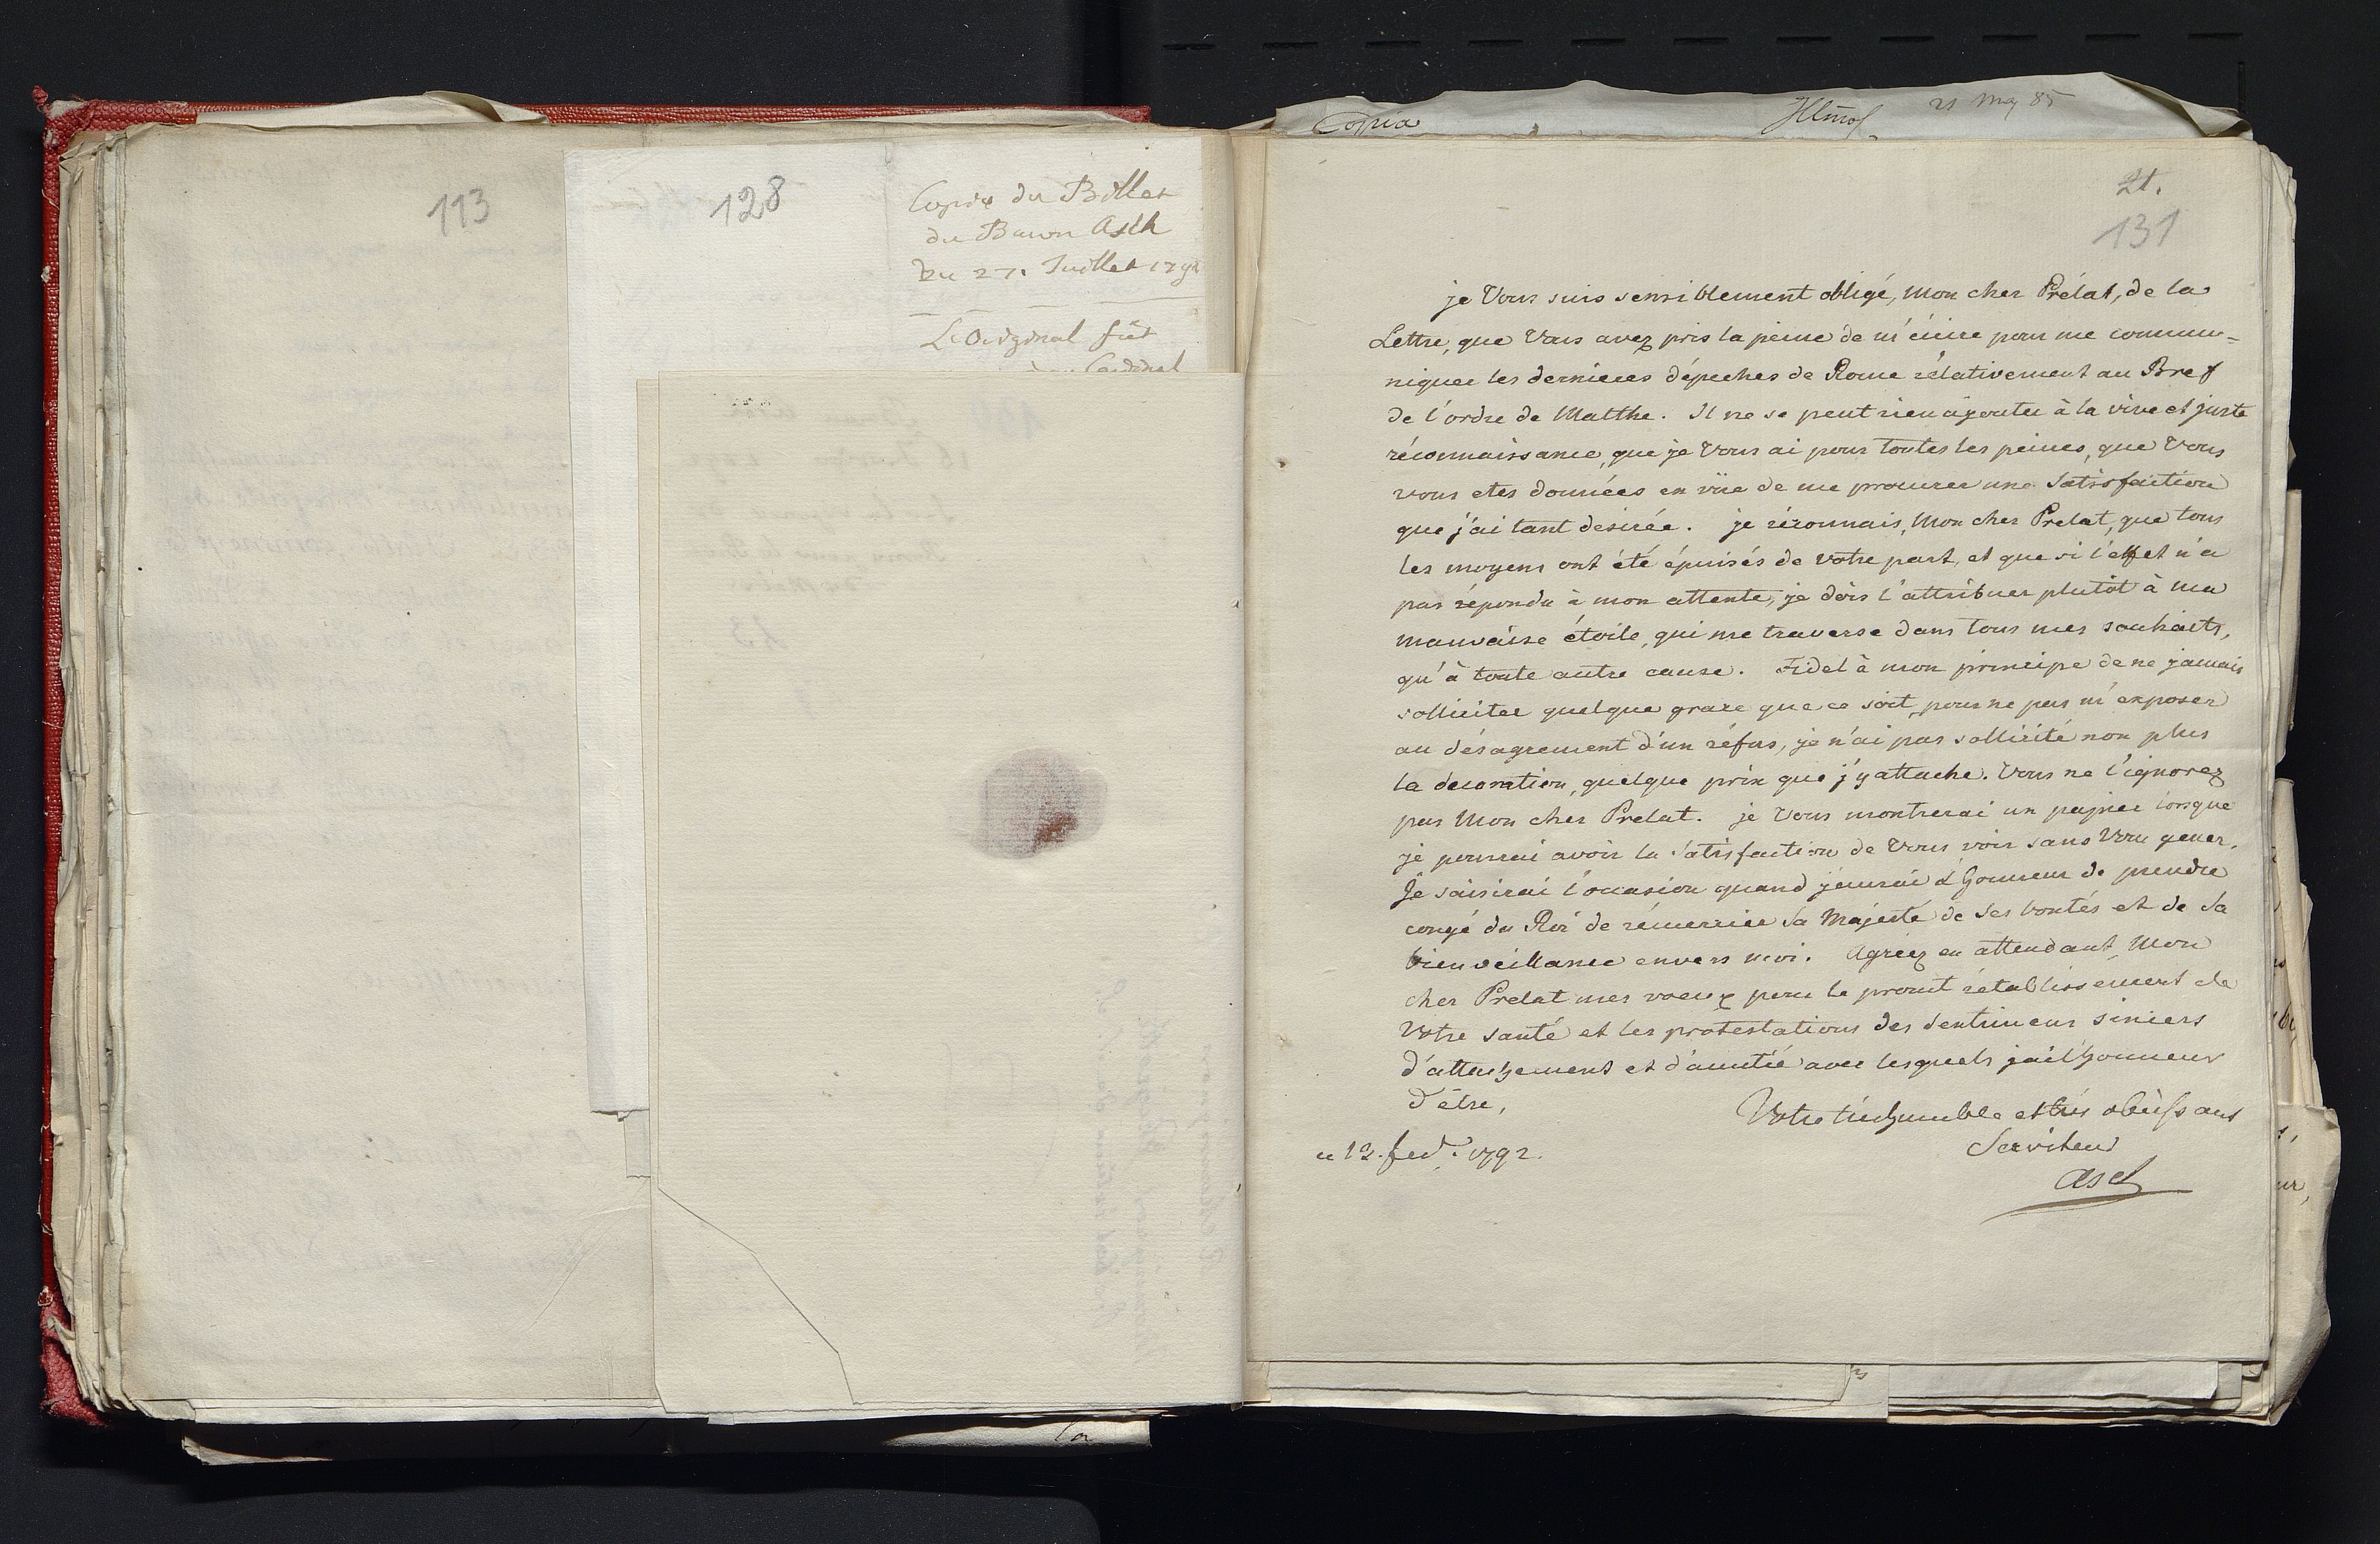 113
128
Copie du Billet
du Baron Asch
Du 27. Juillet 1792
L'Original fût
Cardinal
Copia
21 May 85
21.
131
je Vous suis sensiblement obligé, Mon cher Prélat, de la
Lettre, que Vous avez pris la peine de m'écrire pour me commu=
niquer les dernieres dépeches de Rome rélativement au Bref
de l'ordre de Malthe. Il ne se peut rien ajouter à la vive et juste
réconnaissance, que je Vous ai pour toutes les peines, que Vous
vous etes données en vüe de me procurer une Satisfaction
que j'ai tant desirée. je réconnais, Mon cher Prelat, que tous
les moyens ont été épuisés de votre part, et que si l'effet n'a
pas répondu à mon attente, je dois l'attribuer plutôt à ma
mauvaise étoile, qui me traverse dans tous mes souhaits,
qu'à toute autre cause. Fidel à mon principe de ne jamais
solliciter quelque grace que ce soit, pour ne pas m'exposer
au désagrement d'un réfus, je n'ai pas sollicité non plus
la decoration, quelque prix que j'y attache. Vous ne l'ignorez
pas Mon cher Prelat. je Vous montrerai un papier lorsque
je pourrai avoir la Satisfaction de Vous voir sans Vous gener.
Je saisirai l'occasion quand j'aurai l'honneur de prendre
congé du Roi de rémercier Sa Majesté de Ses bontés et de Sa
bienveillance envers moi. Agréez en attendant, Mon
cher Prelat mes voeux pour le promt rétablissement de
Votre santé et les protestations des sentimens sinceres
d'attachement et d'amitié avec lesquels j'ai l'honneur
d'être,
Votre tréshumble et trés obéissant
Serviteur
ce 12. fevr. 1792.
Asch
la